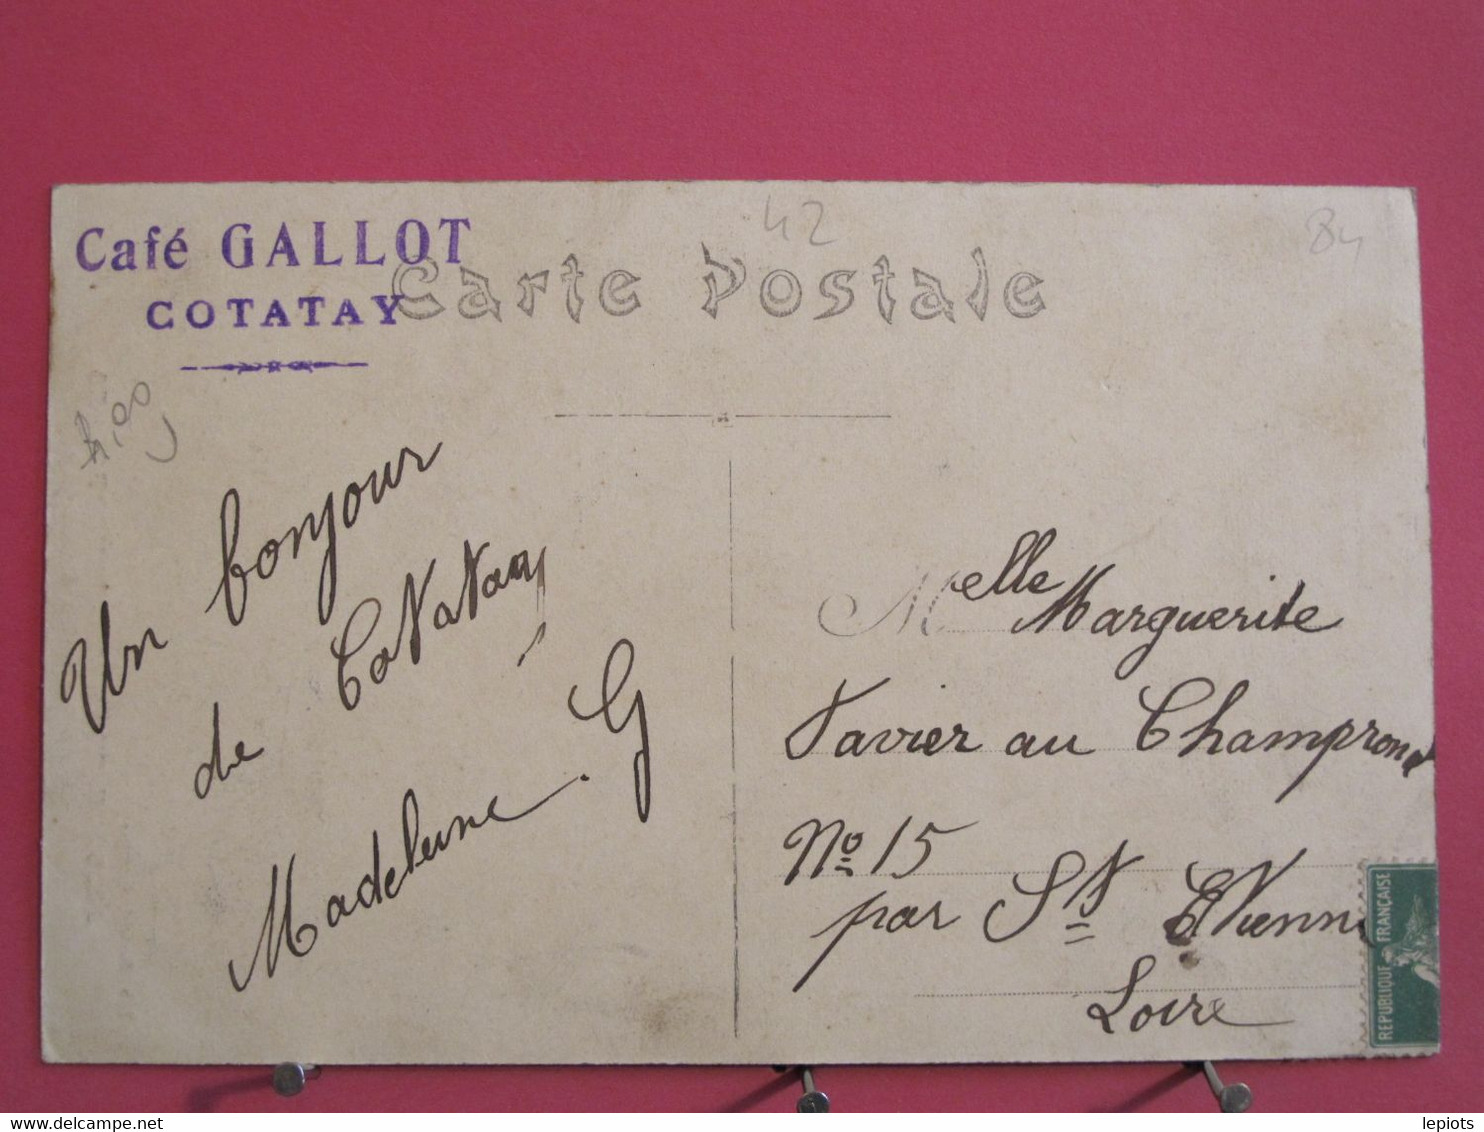 42
84
Café GALLOT
COTATAY
Carte Postale
Un bonjour
de Cotatay
Madeleine. G
Melle Marguerite
Tavier au Champrond
No 15
par St Etienne
Loire
REPUBLIQUE FRANÇAISE
delcampe.net
lepiots